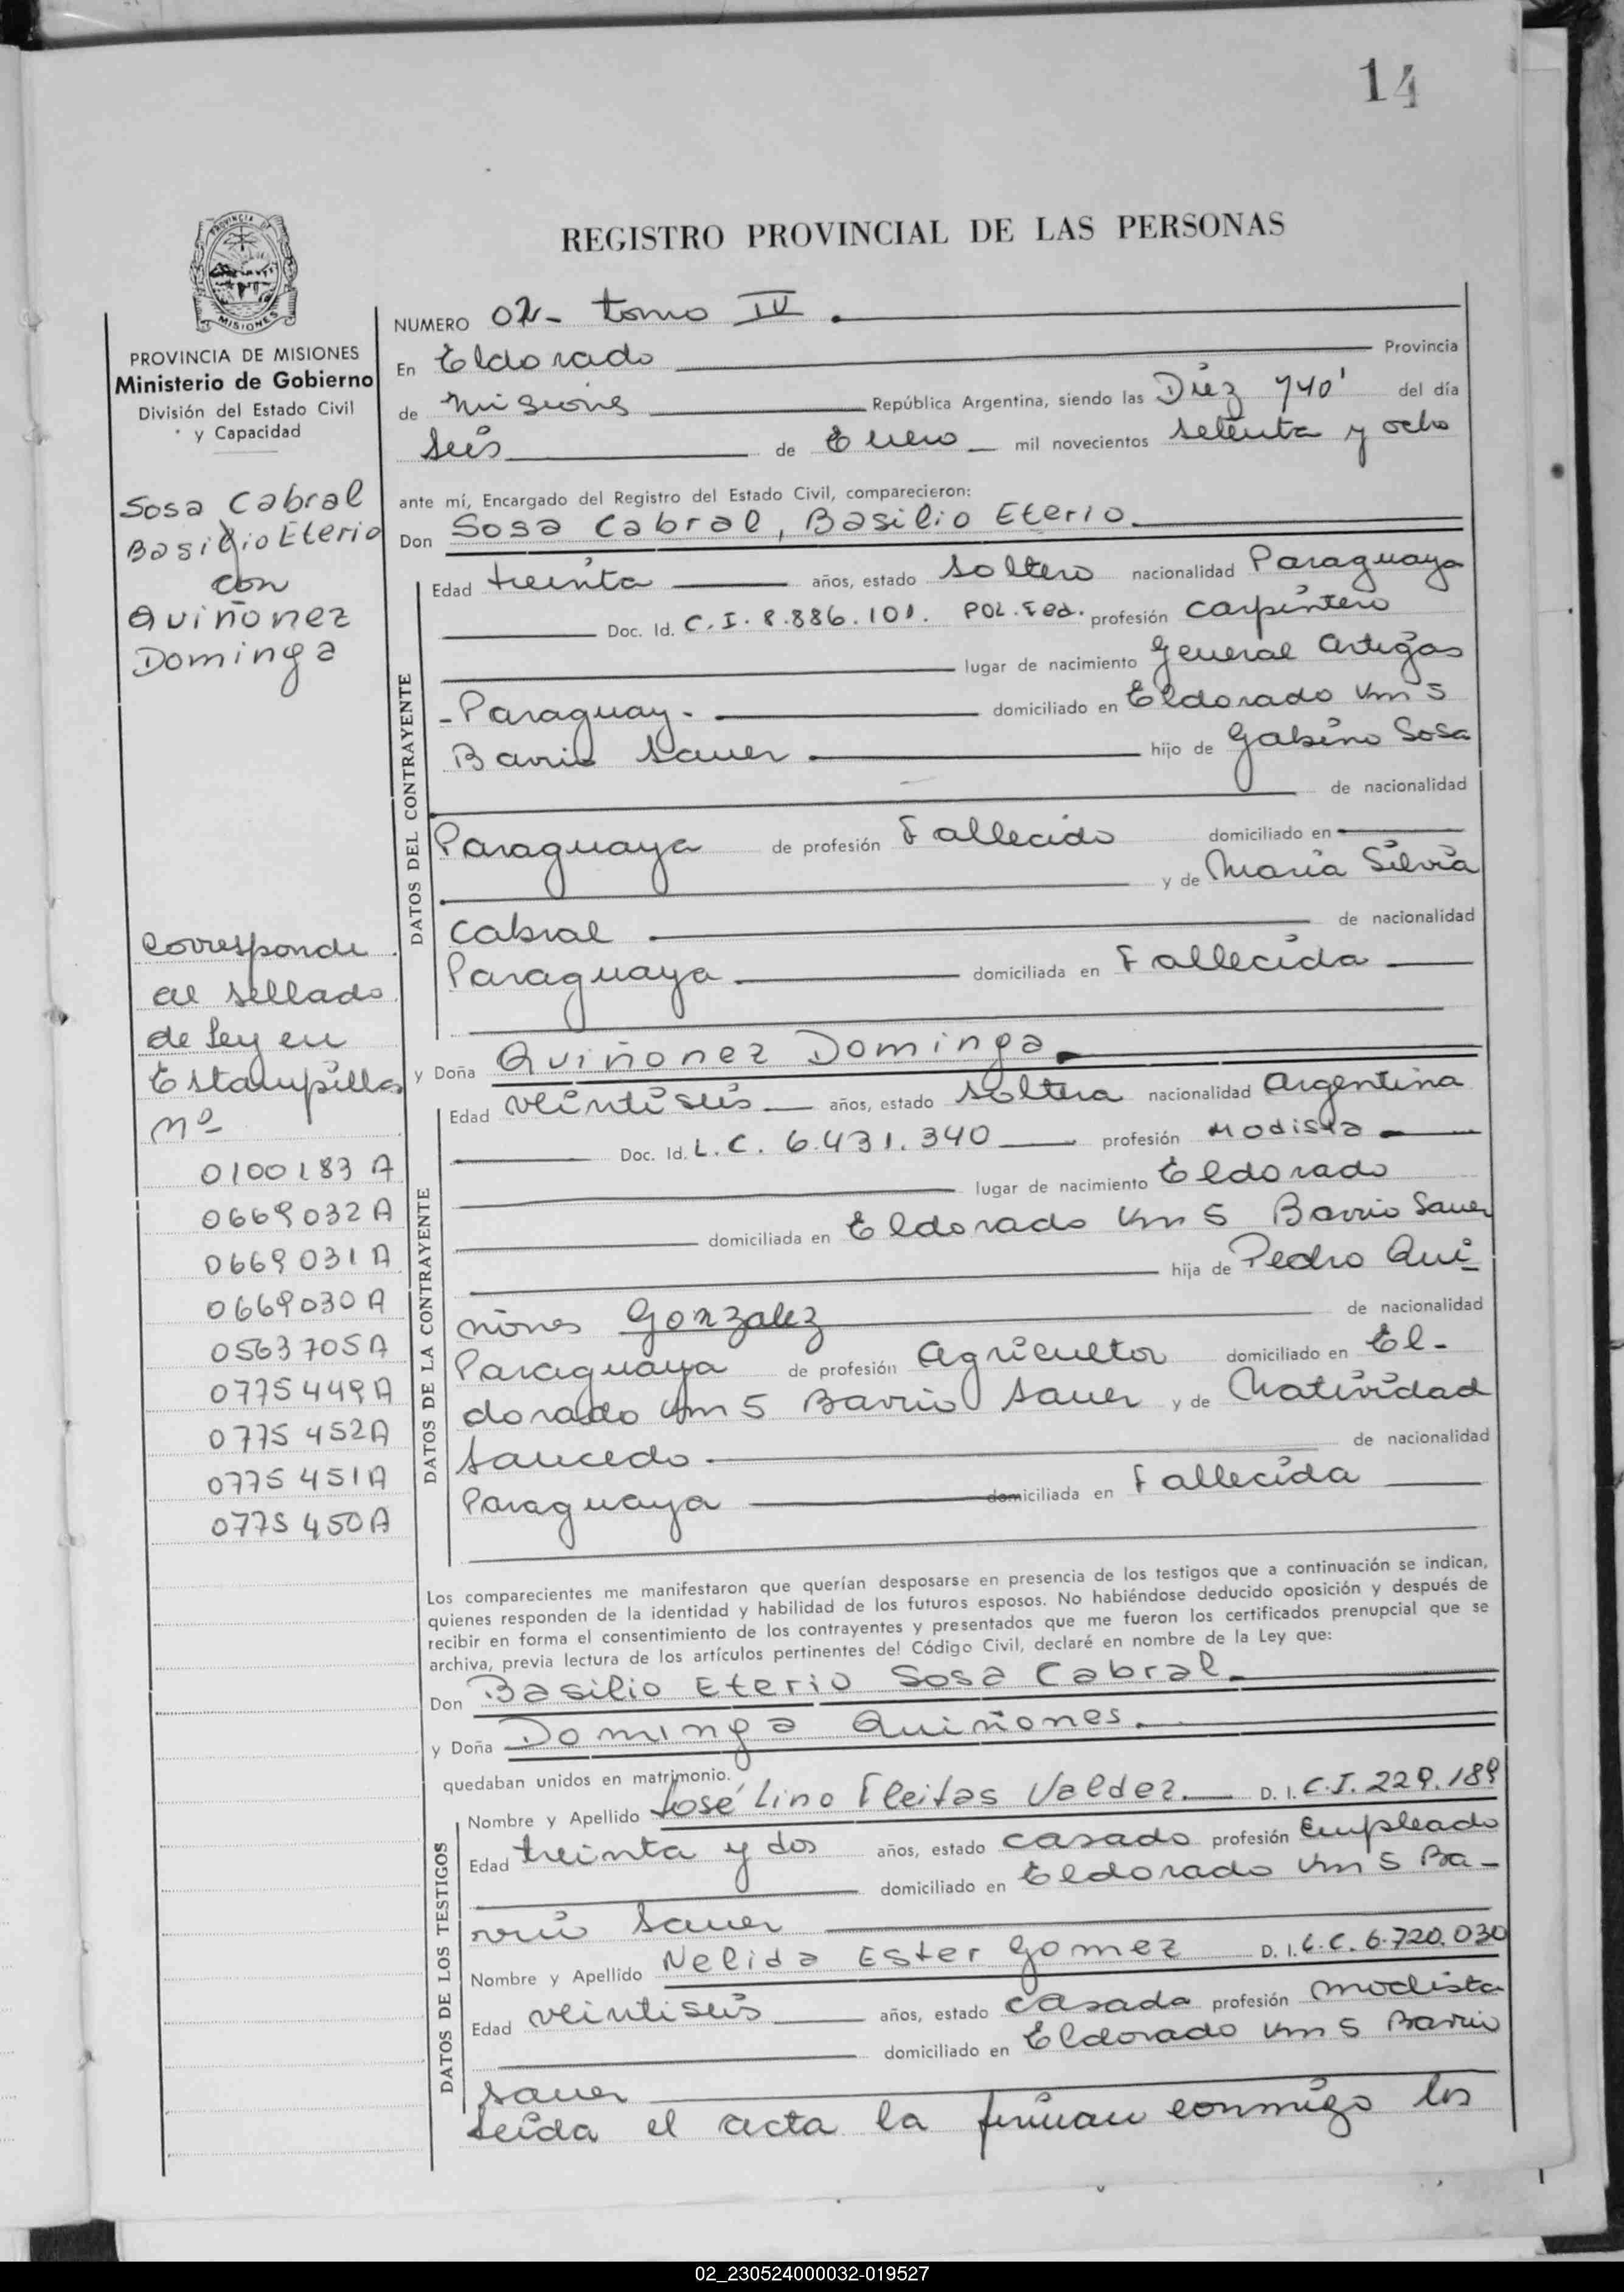 14
PROVINCIA DE
MISIONES
REGISTRO PROVINCIAL DE LAS PERSONAS
PROVINCIA DE MISIONES
Ministerio de Gobierno
División del Estado Civil
y Capacidad
Sosa Cabral
Basilio Eterio
con
Quiñonez
Dominga
Corresponde
al sellado
de ley en
Estampillas
Nº
0100183 A
0669032 A
0669031 A
0669030 A
0563705 A
0775449 A
0775452 A
0775451 A
0775450 A
NUMERO 02- tomo IV
En Eldorado Provincia
de Misiones República Argentina, siendo las Diez y 40' del día
seis de Enero mil novecientos setenta y ocho
ante mí, Encargado del Registro del Estado Civil, comparecieron:
Don Sosa Cabral, Basilio Eterio
DATOS DEL CONTRAYENTE
Edad treinta años, estado soltero nacionalidad Paraguaya
Doc. Id. C.I. 8.886.101. POL. Fed. profesión carpintero
lugar de nacimiento General Artigas
-Paraguay- domiciliado en Eldorado Km 5
Barrio Sauer hijo de Gabino Sosa
de nacionalidad
Paraguaya de profesión Fallecido domiciliado en
y de María Silvia
Cabral de nacionalidad
Paraguaya domiciliada en Fallecida
y Doña Quiñonez Dominga
DATOS DE LA CONTRAYENTE
Edad veintiseis años, estado soltera nacionalidad Argentina
Doc. Id. L.C. 6.431.340 profesión Modista
lugar de nacimiento Eldorado
domiciliada en Eldorado Km 5 Barrio Sauer
hija de Pedro Qui-
ñones Gonzalez de nacionalidad
Paraguaya de profesión Agricultor domiciliado en El-
dorado Km 5 Barrio Sauer y de Natividad
Saucedo de nacionalidad
Paraguaya domiciliada en Fallecida
Los comparecientes me manifestaron que querían desposarse en presencia de los testigos que a continuación se indican,
quienes responden de la identidad y habilidad de los futuros esposos. No habiéndose deducido oposición y después de
recibir en forma el consentimiento de los contrayentes y presentados que me fueron los certificados prenupcial que se
archiva, previa lectura de los artículos pertinentes del Código Civil, declaré en nombre de la Ley que:
Don Basilio Eterio Sosa Cabral
y Doña Dominga Quiñones
quedaban unidos en matrimonio.
DATOS DE LOS TESTIGOS
Nombre y Apellido José Lino Fleitas Valdez D. I. C.I. 229.189
Edad treinta y dos años, estado casado profesión Empleado
domiciliado en Eldorado Km 5 Ba-
rrio Sauer
Nombre y Apellido Nelida Ester Gomez D. I. L.C. 6.720.030
Edad veintiseis años, estado casada profesión modista
domiciliado en Eldorado Km 5 Barrio
Sauer
Leida el acta la firman conmigo los
02_230524000032-019527